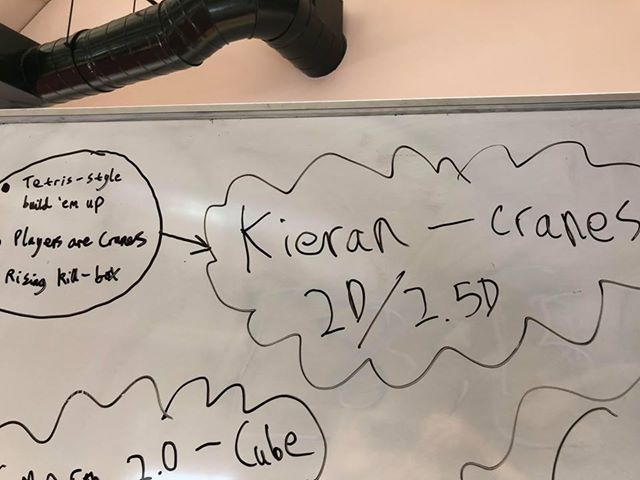 • Tetris-style
build 'em up
• Players are Cranes
Rising kill-box
Kieran - cranes
2D/2.5D
2.0 - Cube